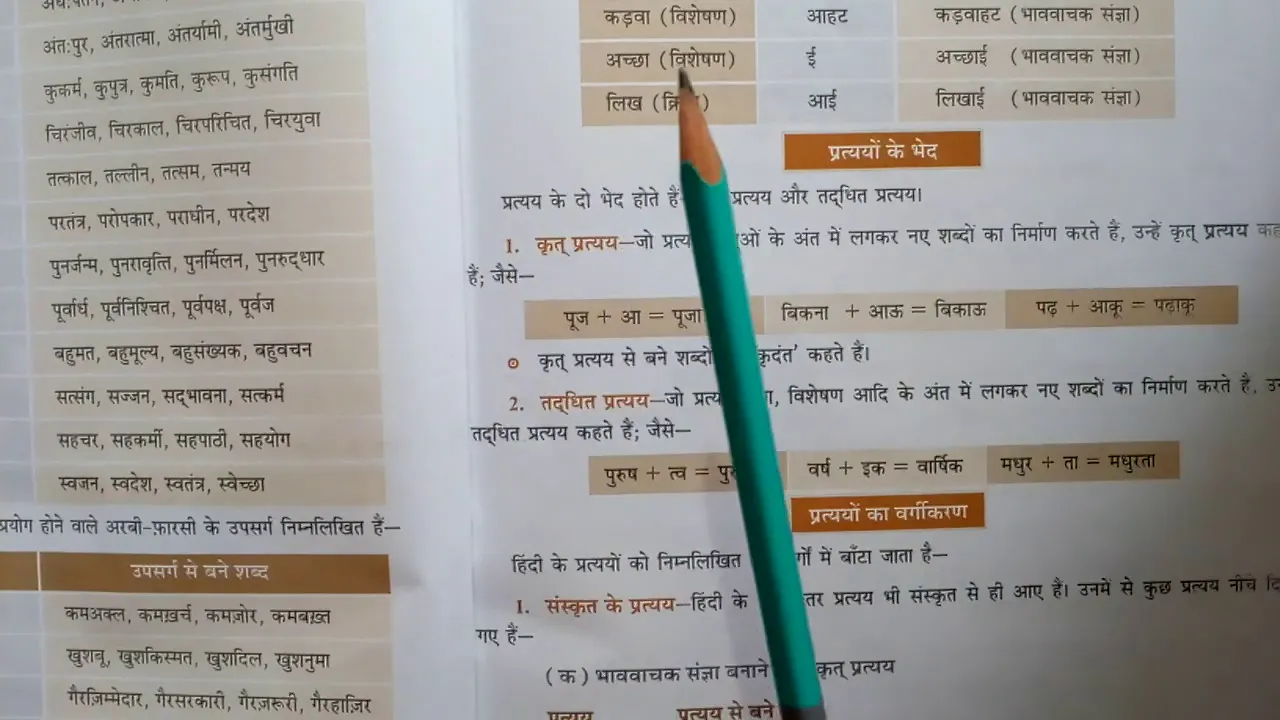 अंत:पुर, अंतरात्मा, अंतर्यामी, अंतर्मुखी
कुकर्म, कुपुत्र, कुमति, कुरूप, कुसंगति
चिरंजीव, चिरकाल, चिरपरिचित, चिरयुवा
तत्काल, तल्लीन, तत्सम, तन्मय
परतंत्र, परोपकार, पराधीन, परदेश
पुनर्जन्म, पुनरावृत्ति, पुनर्मिलन, पुनरुद्धार
पूर्वार्ध, पूर्वनिश्चित, पूर्वपक्ष, पूर्वज
बहुमत, बहुमूल्य, बहुसंख्यक, बहुवचन
सत्संग, सज्जन, सद्भावना, सत्कर्म
सहचर, सहकर्मी, सहपाठी, सहयोग
स्वजन, स्वदेश, स्वतंत्र, स्वेच्छा
प्रयोग होने वाले अरबी-फ़ारसी के उपसर्ग निम्नलिखित हैं—
उपसर्ग से बने शब्द
कमअक्ल, कमख़र्च, कमज़ोर, कमबख़्त
खुशबू, खुशकिस्मत, खुशदिल, खुशनुमा
गैरज़िम्मेदार, गैरसरकारी, गैरज़रूरी, गैरहाज़िर
कड़वा (विशेषण) आहट कड़वाहट (भाववाचक संज्ञा)
अच्छा (विशेषण) ई अच्छाई (भाववाचक संज्ञा)
लिख आई लिखाई (भाववाचक संज्ञा)
प्रत्ययों के भेद
प्रत्यय के दो भेद होते हैं प्रत्यय और तद्धित प्रत्यय।
1. कृत् प्रत्यय—जो के अंत में लगकर नए शब्दों का निर्माण करते हैं, उन्हें कृत् प्रत्यय
हैं; जैसे—
पूज + आ = पूजा बिकना + आऊ = बिकाऊ पढ़ + आकू = पढ़ाकू
कृत् प्रत्यय से बने कृदंत' कहते हैं।
2. तद्धित प्रत्यय—जो विशेषण आदि के अंत में लगकर नए शब्दों का निर्माण करते हैं,
तद्धित प्रत्यय कहते हैं; जैसे—
पुरुष + त्व = वर्ष + इक = वार्षिक मधुर + ता = मधुरता
प्रत्ययों का वर्गीकरण
हिंदी के प्रत्ययों को निम्नलिखित में बाँटा जाता है—
1. संस्कृत के प्रत्यय—हिंदी के प्रत्यय भी संस्कृत से ही आए हैं। उनमें से कुछ प्रत्यय नीचे
गए हैं—
(क) भाववाचक संज्ञा बनाने कृत् प्रत्यय
प्रत्यय प्रत्यय से बने